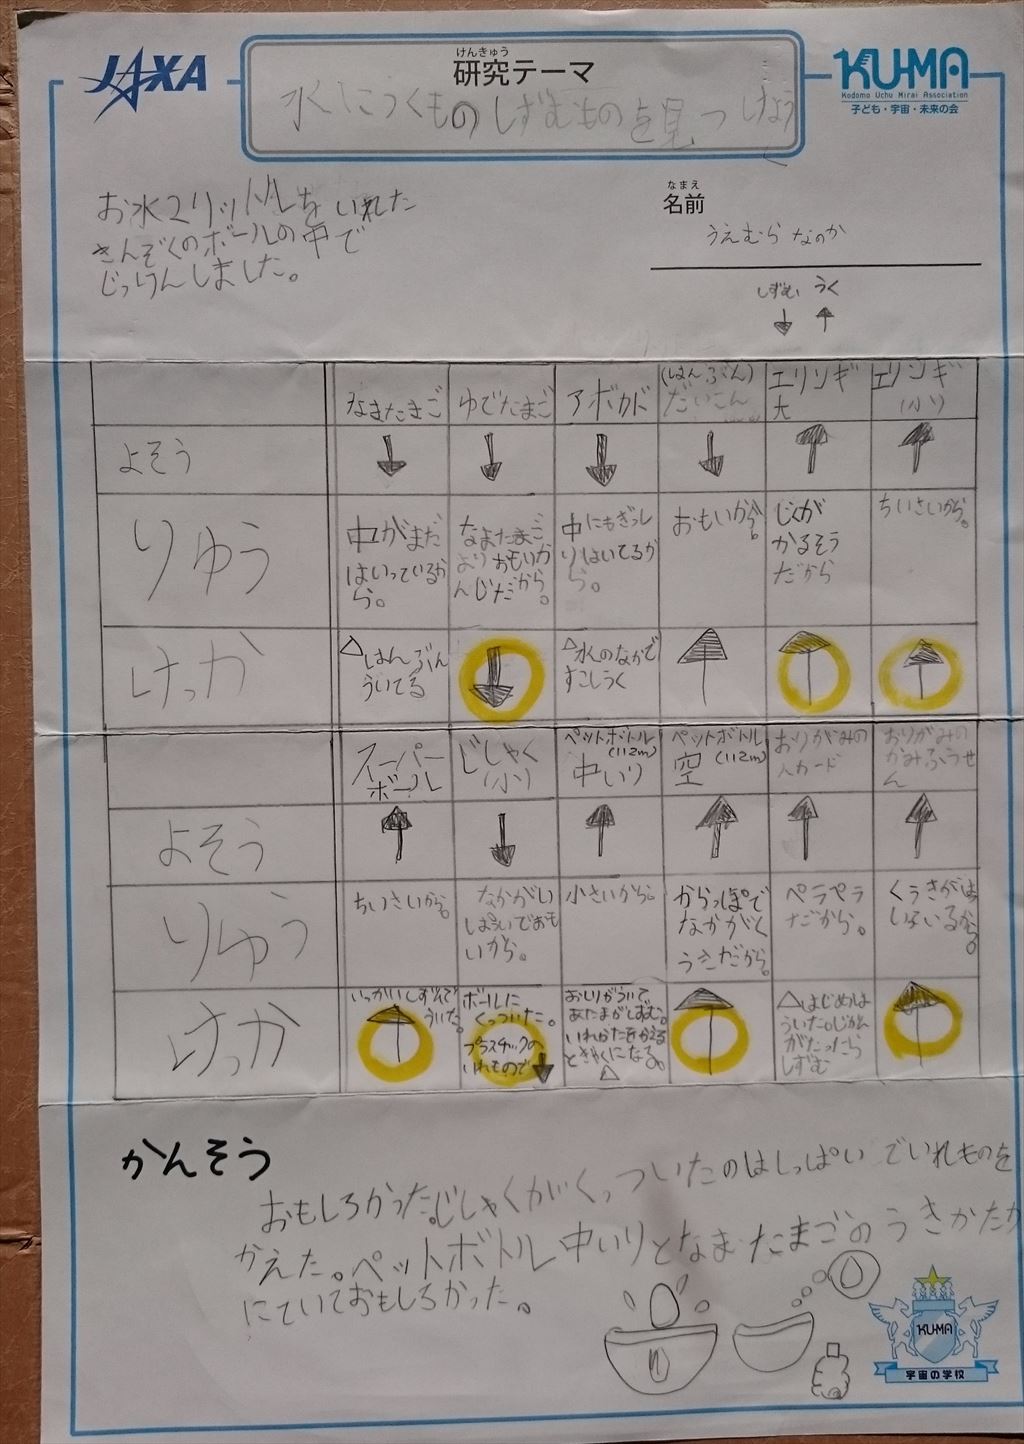 JAXA
けんきゅう
研究テーマ
KU-MA
Kodomo Uchu Mirai Association
子ども・宇宙・未来の会
水にうくものしずむものを見つけよう
お水2リットルをいれた
きんぞくのボールの中で
じっけんしました。
なまえ
名前
うえむらなのか
しずむ うく
↓ ↑
なまたまご ゆでたまご アボカド (はんぶん) だいこん エリンギ 大 エリンギ (小)
よそう ↓ ↓ ↓ ↓ ↑ ↑
りゅう
中がまだ
はいっているか
ら。
なまたまご
よりおもいか
んじだから。
中にもぎっし
りはいてるか
ら。
おもいから。
じくが
かるそう
だから
ちいさいから。
けっか
△はんぶん
ういてる
↓
△水のなかで
すこしうく
↑ ↑ ↑
スーパー
ボール
じしゃく
(小)
ペットボトル
(112m)
中いり
ペットボトル
(112m)
空
おりがみの
カード
おりがみの
かみふうせ
ん
よそう ↑ ↓ ↑ ↑ ↑ ↑
りゅう
ちいさいから。
なかがい
しぱいでおも
いから。
小さいから。
からっぽで
なかがく
うきだから。
ペラペラ
だから。
くうきがは
いているから。
けっか
いっかいしずんで
ういた。
↑
ボールに
くっついた。
プラスチックの
いれもので ↓
おしりがういて
あたまがしずむ。
いれかたをかえる
とぎゃくになる。
△
↑
△はじめは
ういた。じかん
がたったら
しずむ
↑
かんそう
おもしろかった。じしゃくがくっついたのはしっぱいでいれものを
かえた。ペットボトル中いりとなまたまごのうきかたが
にていておもしろかった。
KU-MA
宇宙の学校